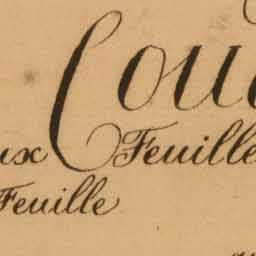 Cou
ux Feuille
Feuille